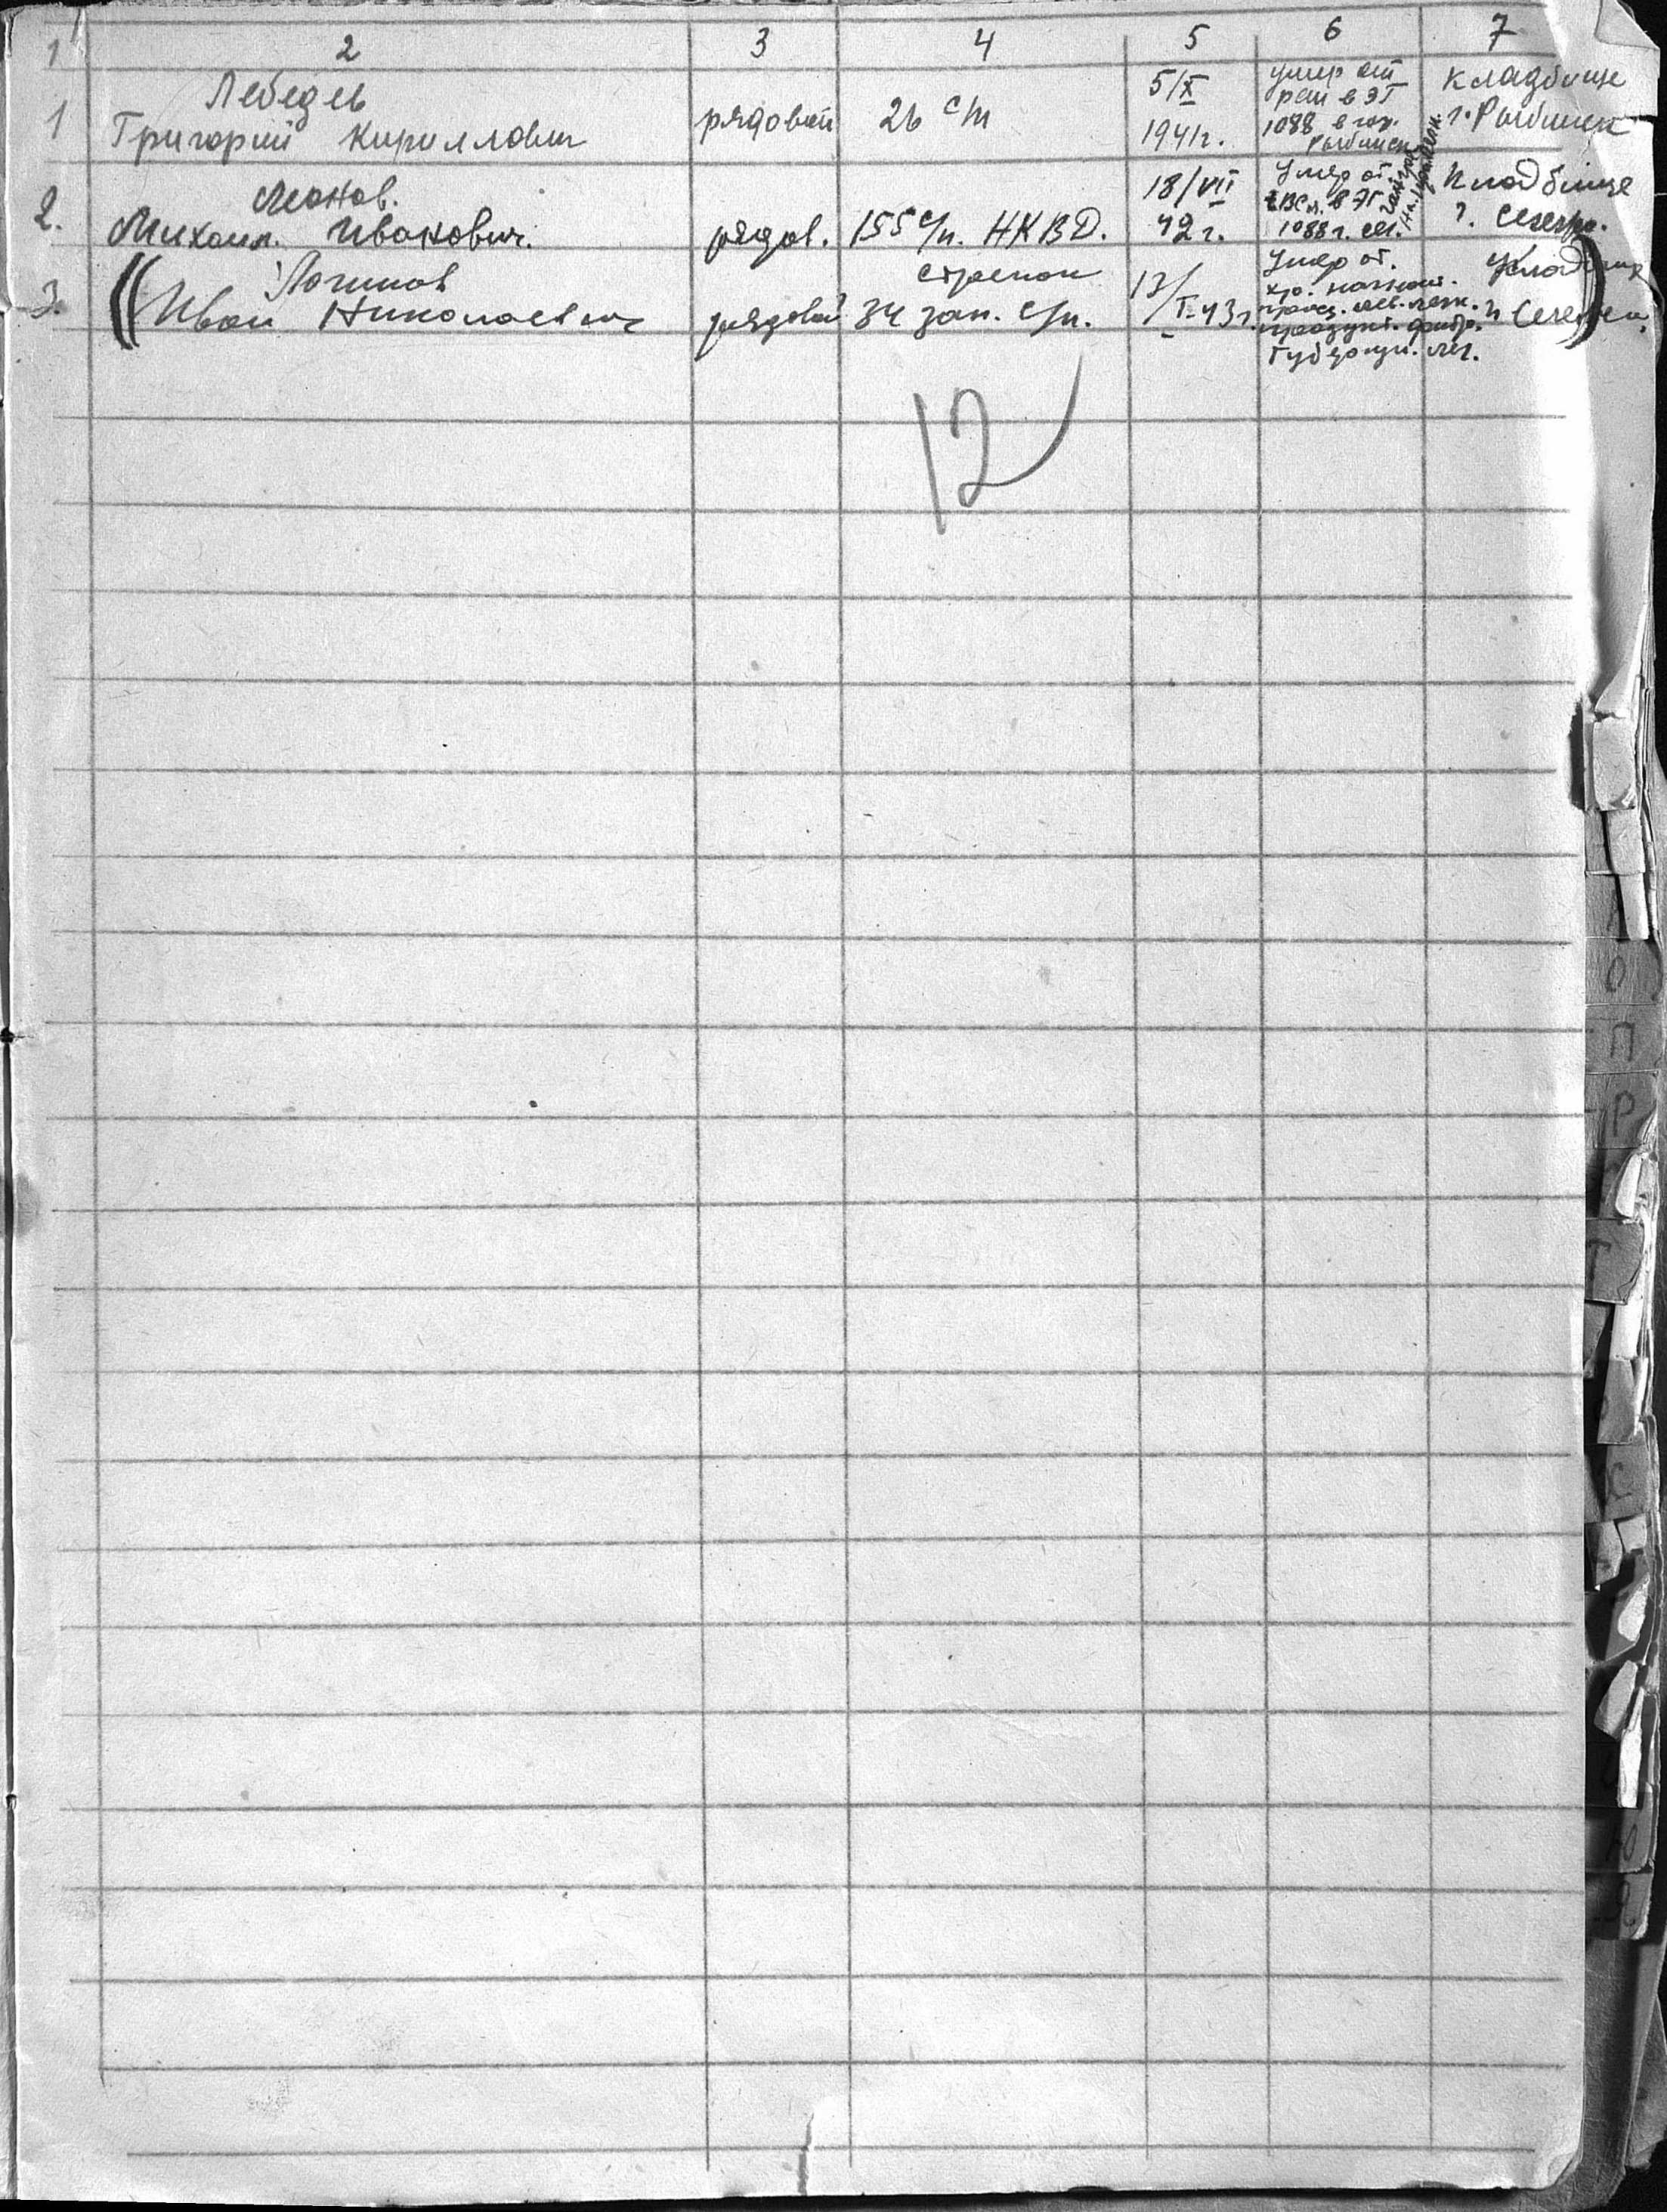 1 2 3 4 5 6 7
1 Лебедев
Григорий Кириллович
рядовой
26 с/п
5/X
1941г.
умер от
ран в ЭГ
1088 в гор.
Рыбинск
кладбище
г. Рыбинск
2. Леонов.
Михаил. Иванович.
рядов.
155 с/п. НКВД.
18/VII
42 г.
Умер от.
в ЭГ
1088 г.
Кладбище
г.
3. Логинов
Иван Николаевич
рядовой
стрелок
34 зап. с/п.
13/
I-43 г.
Умер от.
Кладбище
12
О
П
Р
Т